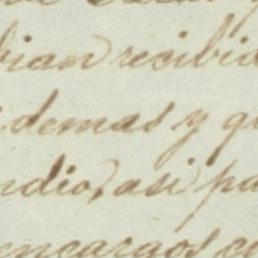 bian recibid
demas y qu
ndio, asi pa
encargos co